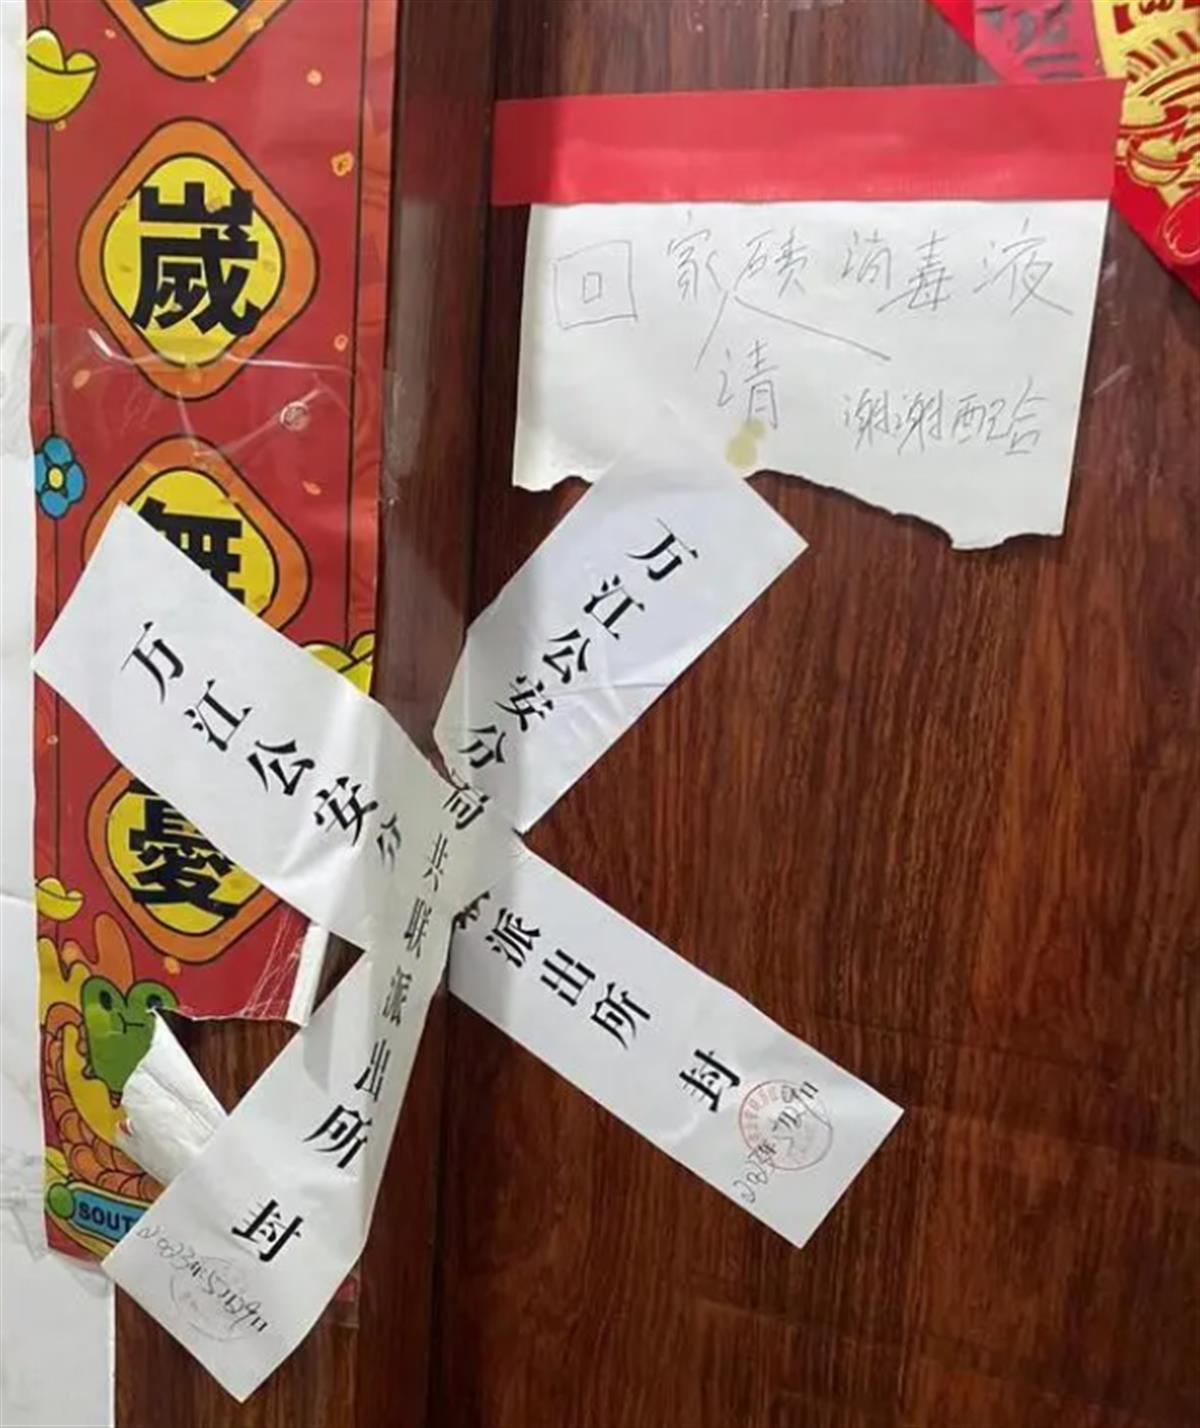 嵗
無
憂
SOUT
回家喷消毒液
请
谢谢配合
万江公安分局共联派出所 封
2023年5月29日
万江公安分
派出所 封
2023年5月29日